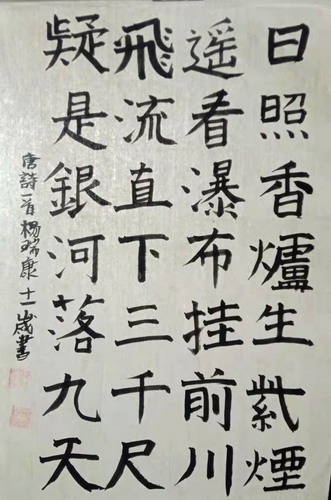 日照香爐生紫煙
遥看瀑布挂前川
飛流直下三千尺
疑是銀河落九天
唐詩一首楊瑞康十一歲書